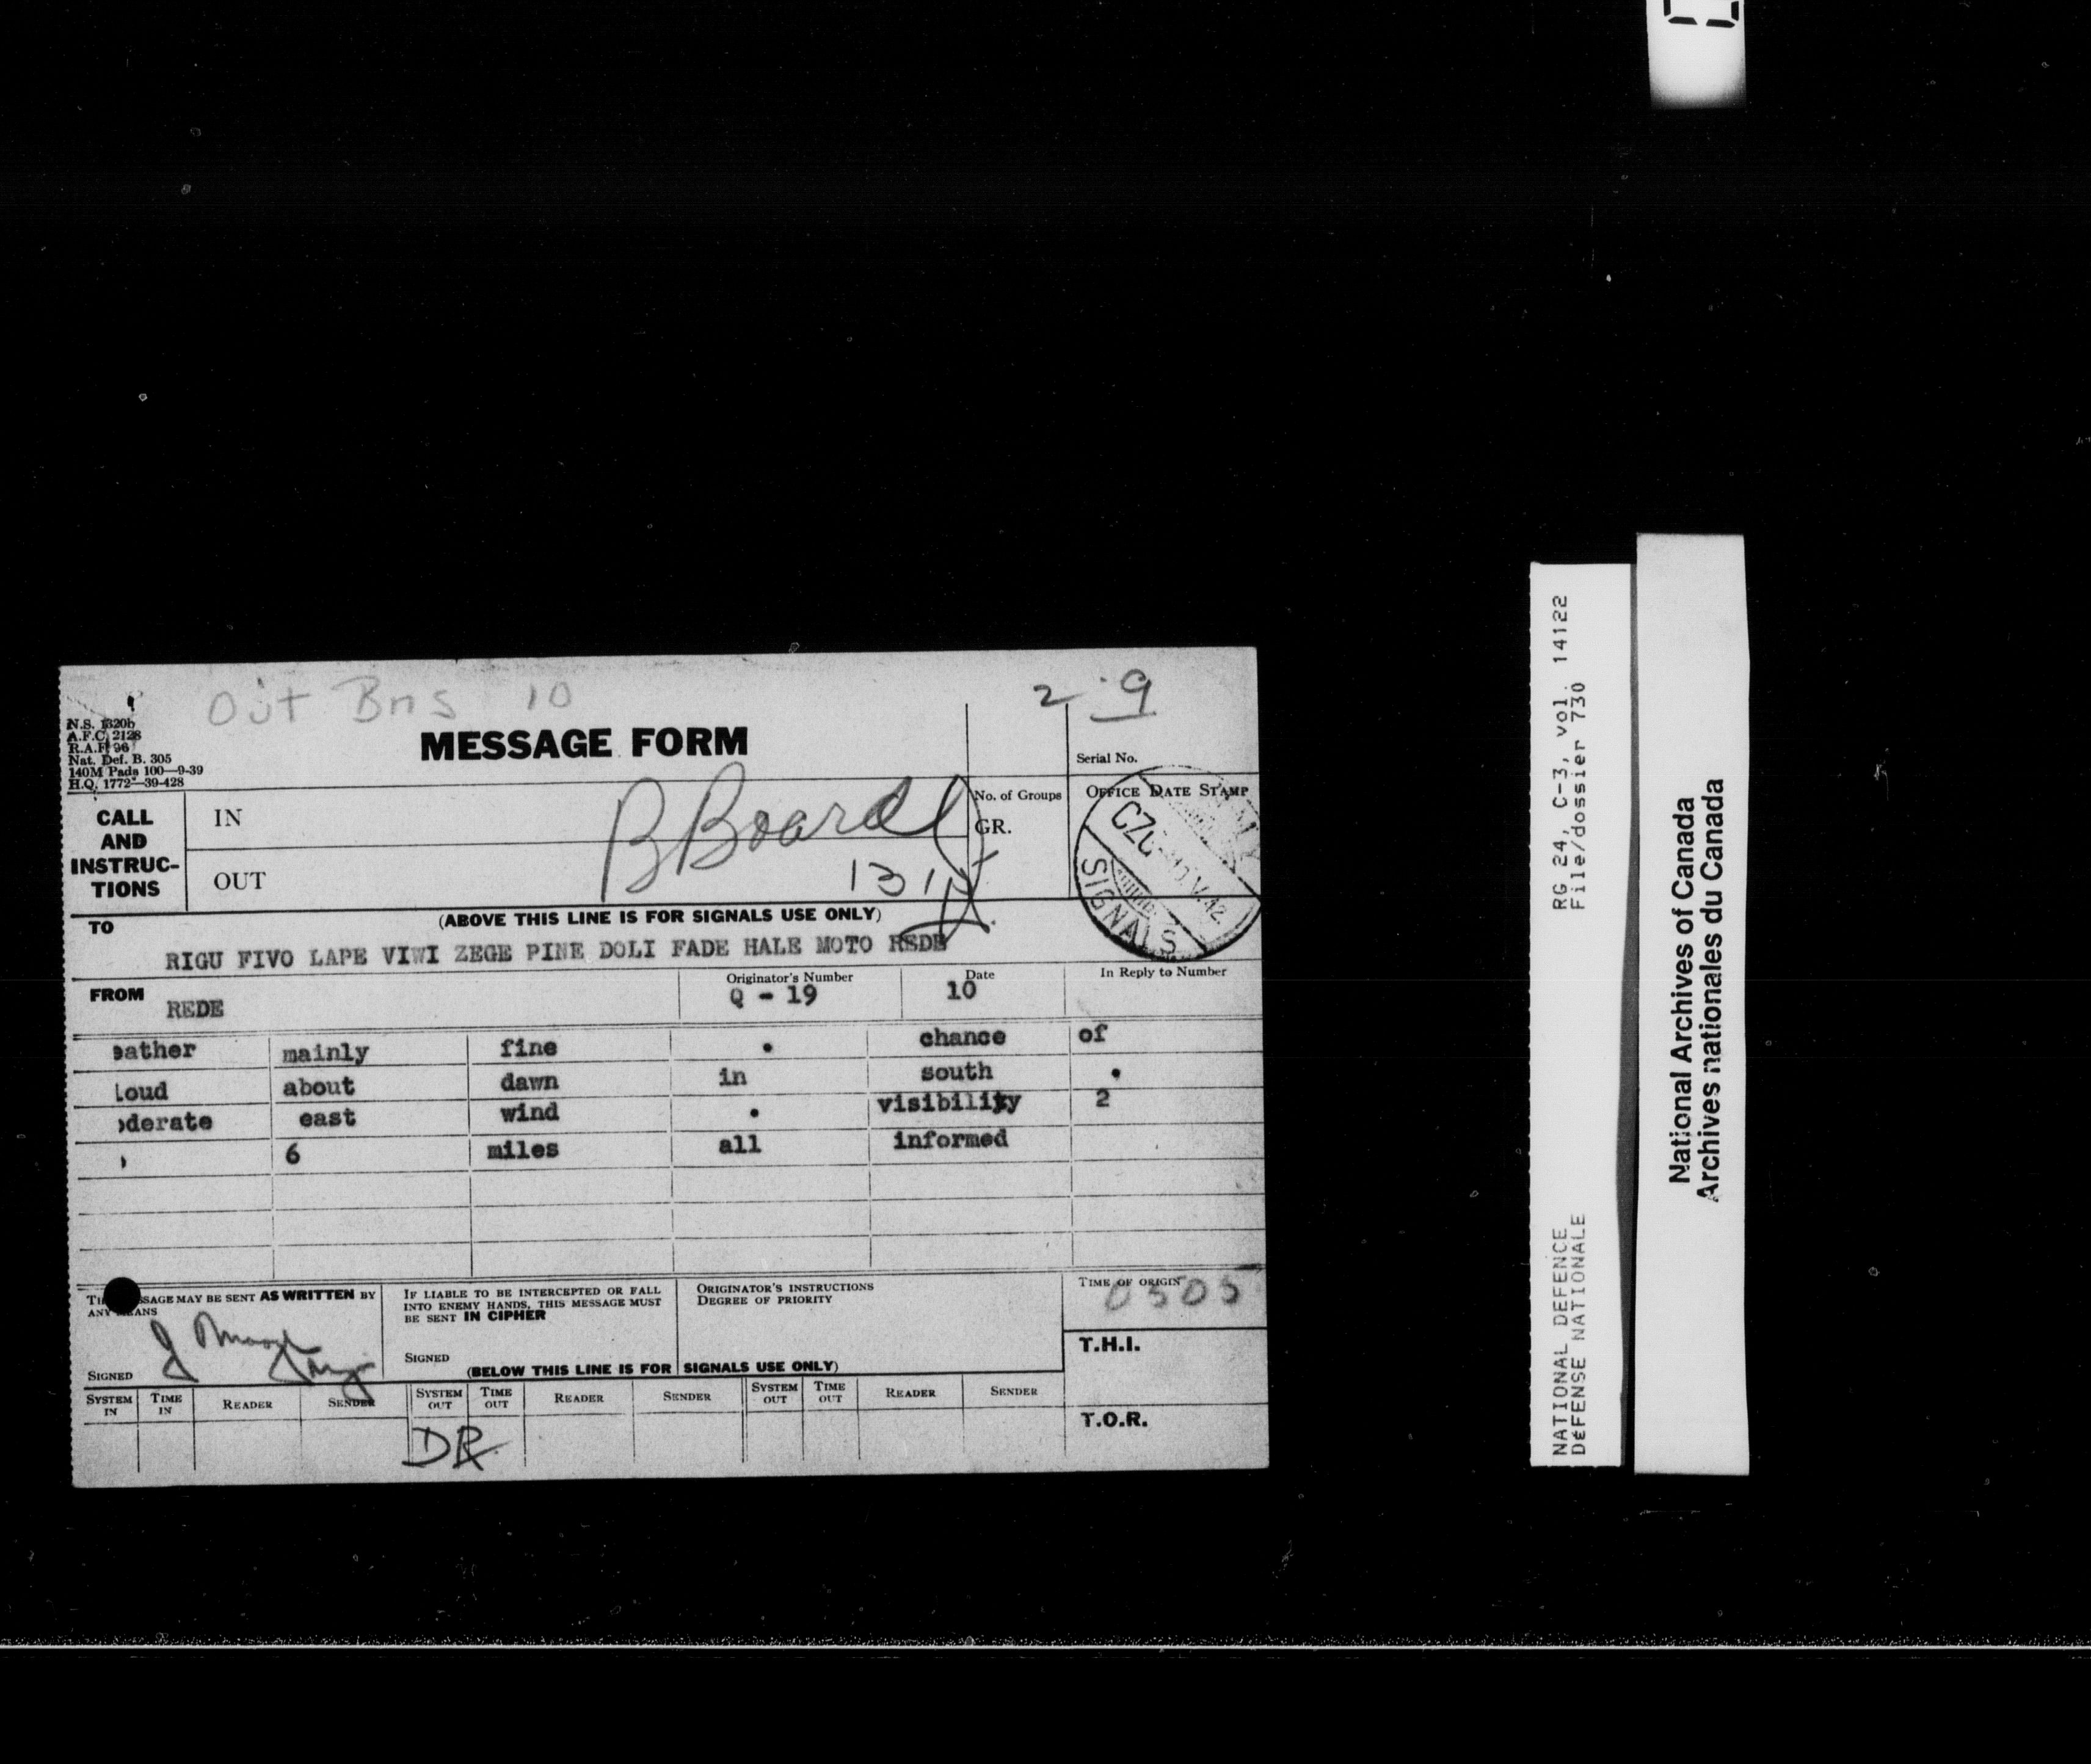 Out Bns 10
2 9
N.S. 1320b
A.F.C. 2128
R.A.F. 96
Nat. Def. B. 305
140M Pads 100—9-39
H.Q. 1772—39-428
MESSAGE FORM
Serial No.
CALL AND INSTRUC-TIONS
IN
B Board
No. of Groups
GR.
OFFICE DATE STAMP
OUT
SIGNALS
(ABOVE THIS LINE IS FOR SIGNALS USE ONLY)
TO
RIGU FIVO LAPE VIWI ZEGE PINE DOLI FADE HALE MOTO REDE
FROM
REDE
Originator's Number
Q - 19
Date
10
In Reply to Number
eather mainly fine . chance of
loud about dawn in south .
oderate east wind . visibility 2
6 miles all informed
SSAGE MAY BE SENT AS WRITTEN BY
ANY MEANS
SIGNED
IF LIABLE TO BE INTERCEPTED OR FALL
INTO ENEMY HANDS, THIS MESSAGE MUST
BE SENT IN CIPHER
SIGNED
ORIGINATOR'S INSTRUCTIONS
DEGREE OF PRIORITY
TIME OF ORIGIN
0505
T.H.I.
(BELOW THIS LINE IS FOR SIGNALS USE ONLY)
SYSTEM IN TIME IN READER SENDER SYSTEM OUT TIME OUT READER SENDER SYSTEM OUT TIME OUT READER SENDER
DR
T.O.R.
RG 24, C-3, vol. 14122
File/dossier 730
NATIONAL DEFENCE
DÉFENSE NATIONALE
National Archives of Canada
Archives nationales du Canada